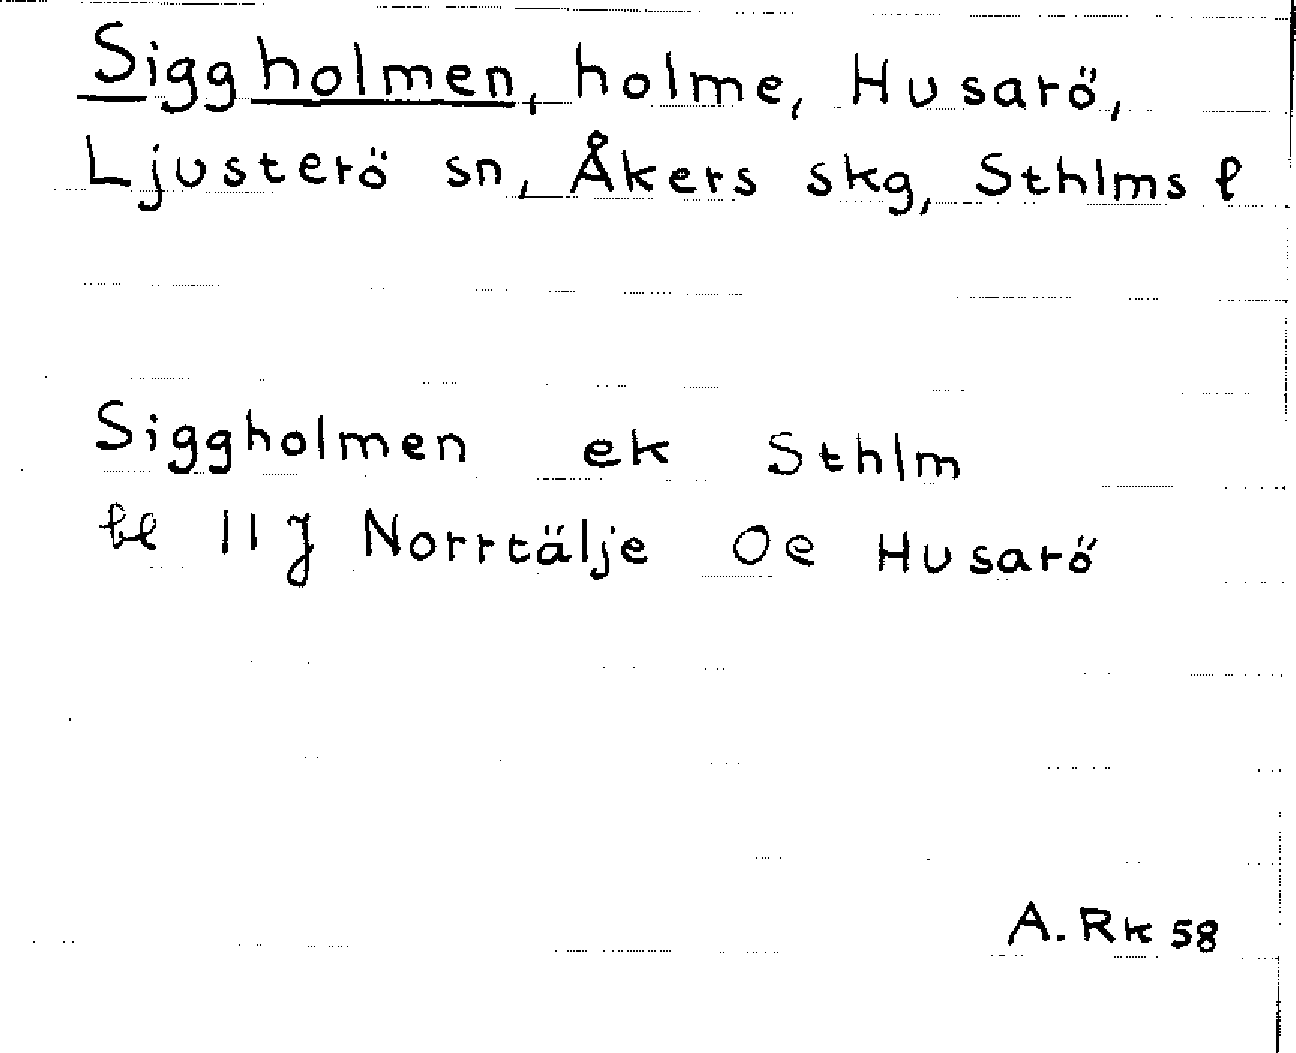 Siggholmen, holme, Husarö,
Ljusterö sn, Åkers skg, Sthlms l
Siggholmen ek Sthlm
bl 11 J Norrtälje Oe Husarö
A. Rk 58